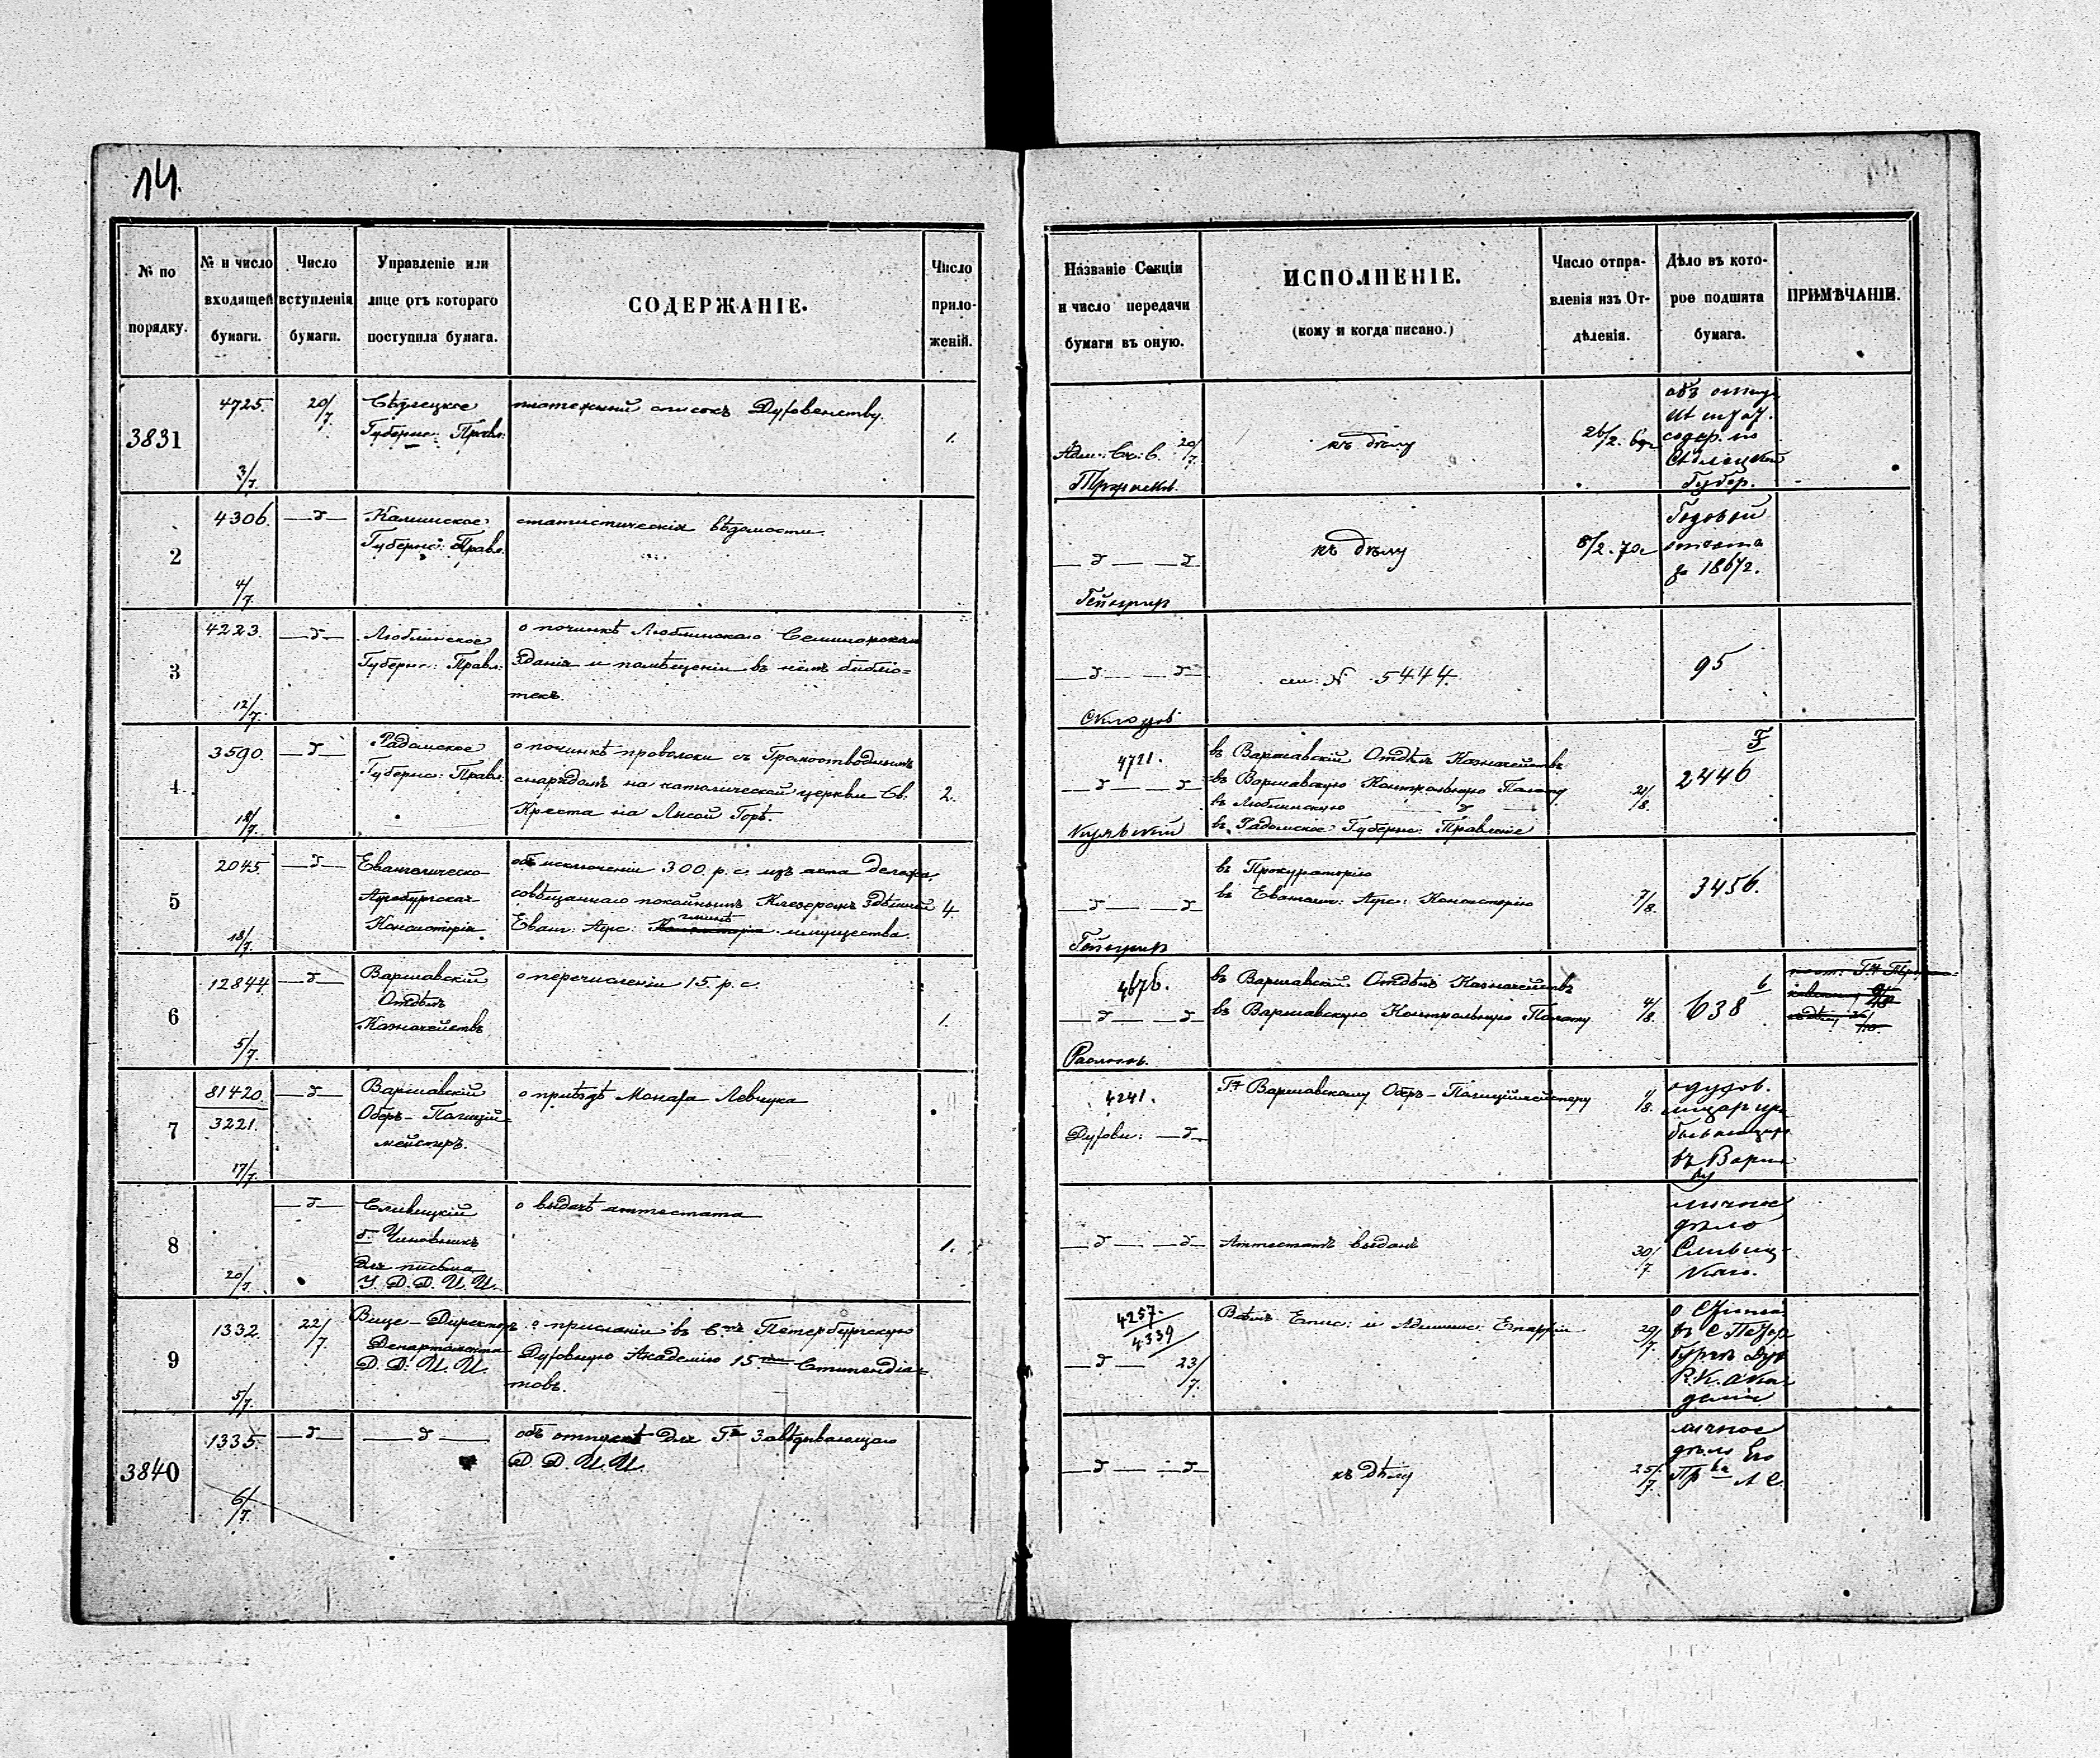 14.
№ по порядку.
№ и число входящей бумаги.
Число вступленія бумаги.
Управленіе или лице отъ котораго поступила бумага.
СОДЕРЖАНІЕ.
Число приложеній.
Названіе Секціи и число передачи бумаги въ оную.
ИСПОЛНЕНІЕ.
(кому и когда писано.)
Число отправленія изъ Отдѣленія.
Дѣло въ которое подшита бумага.
ПРИМѢЧАНІЕ.
3831
4725.
3/7.
20/7.
Сѣдлецкое
Губернс: Правл:
платежный списокъ Духовенству.
1.
Адм: Сч: С. 20/7.
къ дѣлу
26/2.
объ отпу
содер. по
Сѣдлецкой
Губер.
2
4306.
4/7.
—д—
Калишское
Губернс: Правл.
статистическія вѣдомости.
—д— —д
Гейнрих
къ дѣлу
8/2. 70
Годовой
отчета
за 186
3
4223.
12/7.
—д—
Люблинское
Губернс: Правл:
о починкѣ Люблинскаго Семинарскаго
зданія и помѣщеніи въ нёмъ библіо=
текъ.
—д— —д—
см: № 5444.
95
4.
3590.
18/7.
—д—
Радомское
Губернс: Правл:
о починкѣ проволоки съ Громоотводнымъ
снарядомъ на католической церкви Св.
Креста на Лысой Горѣ.
2.
4721.
—д— —д
въ Варшавскій Отдѣлъ Казначействъ
въ Варшавскую Контрольную Палату
въ Люблинскую —д—
въ Радомское Губернс: Правленіе
21/8.
2446
5
2045.
18/7.
—д—
Евангелическо-
Аугсбургская
Консисторія
объ исключеніи 300 р. с. изъ акта
совѣщаннаго покойнымъ Здѣшней
Еванг: Аугс: гминѣ имущества.
4
—д— —д
Гейнрих
въ Прокураторію
въ Евангел: Аугс: Консисторію
7/8.
3456.
6
12844.
5/7.
—д—
Варшавскій
Отдѣлъ
Казначействъ
о перечисленіи 15. р. с.
1.
4676.
—д— —д
въ Варшавскій Отдѣлъ Казначействъ
въ Варшавскую Контрольную Палату
4/8.
638 6
7
81420.
3221.
17/7.
—д—
Варшавскій
Оберъ-Полицій=
мейстеръ.
о пріѣздѣ Монаха Левчука
4241.
Духовн: —д—
Гну Варшавскому Оберъ-Полиціймейстеру
1/8.
о духов.
лицах при
въ Варша
ву
8
20/7
—д—
Сливицкій
б. Чиновникъ
для письма
У. Д. Д. И. И.
о выдачѣ аттестата
1.
—д— —д—
Аттестатъ выданъ
30/7.
личное
дѣло
Сливиц-
каго.
9
1332.
5/7.
22/7.
Вице-Директоръ
Департамента
Д. Д. И. И.
о присланіи въ С.нктъ Петербургскую
Духовную Академію 15ти Стипендіа=
товъ.
4257.
4339
—д— 23/7.
Всѣмъ Епис: и Админис: Епархіи
29/7.
въ С Петер
бургъ Дух
Р. К. Ака-
деміи
3840
1335.
6/7.
—д—
—д—
объ отпускѣ для Гна Завѣдывающаго
Д. Д. И. И.
—д— —д—
къ дѣлу
25/7.
личное
дѣло Его
Пр ва А С.